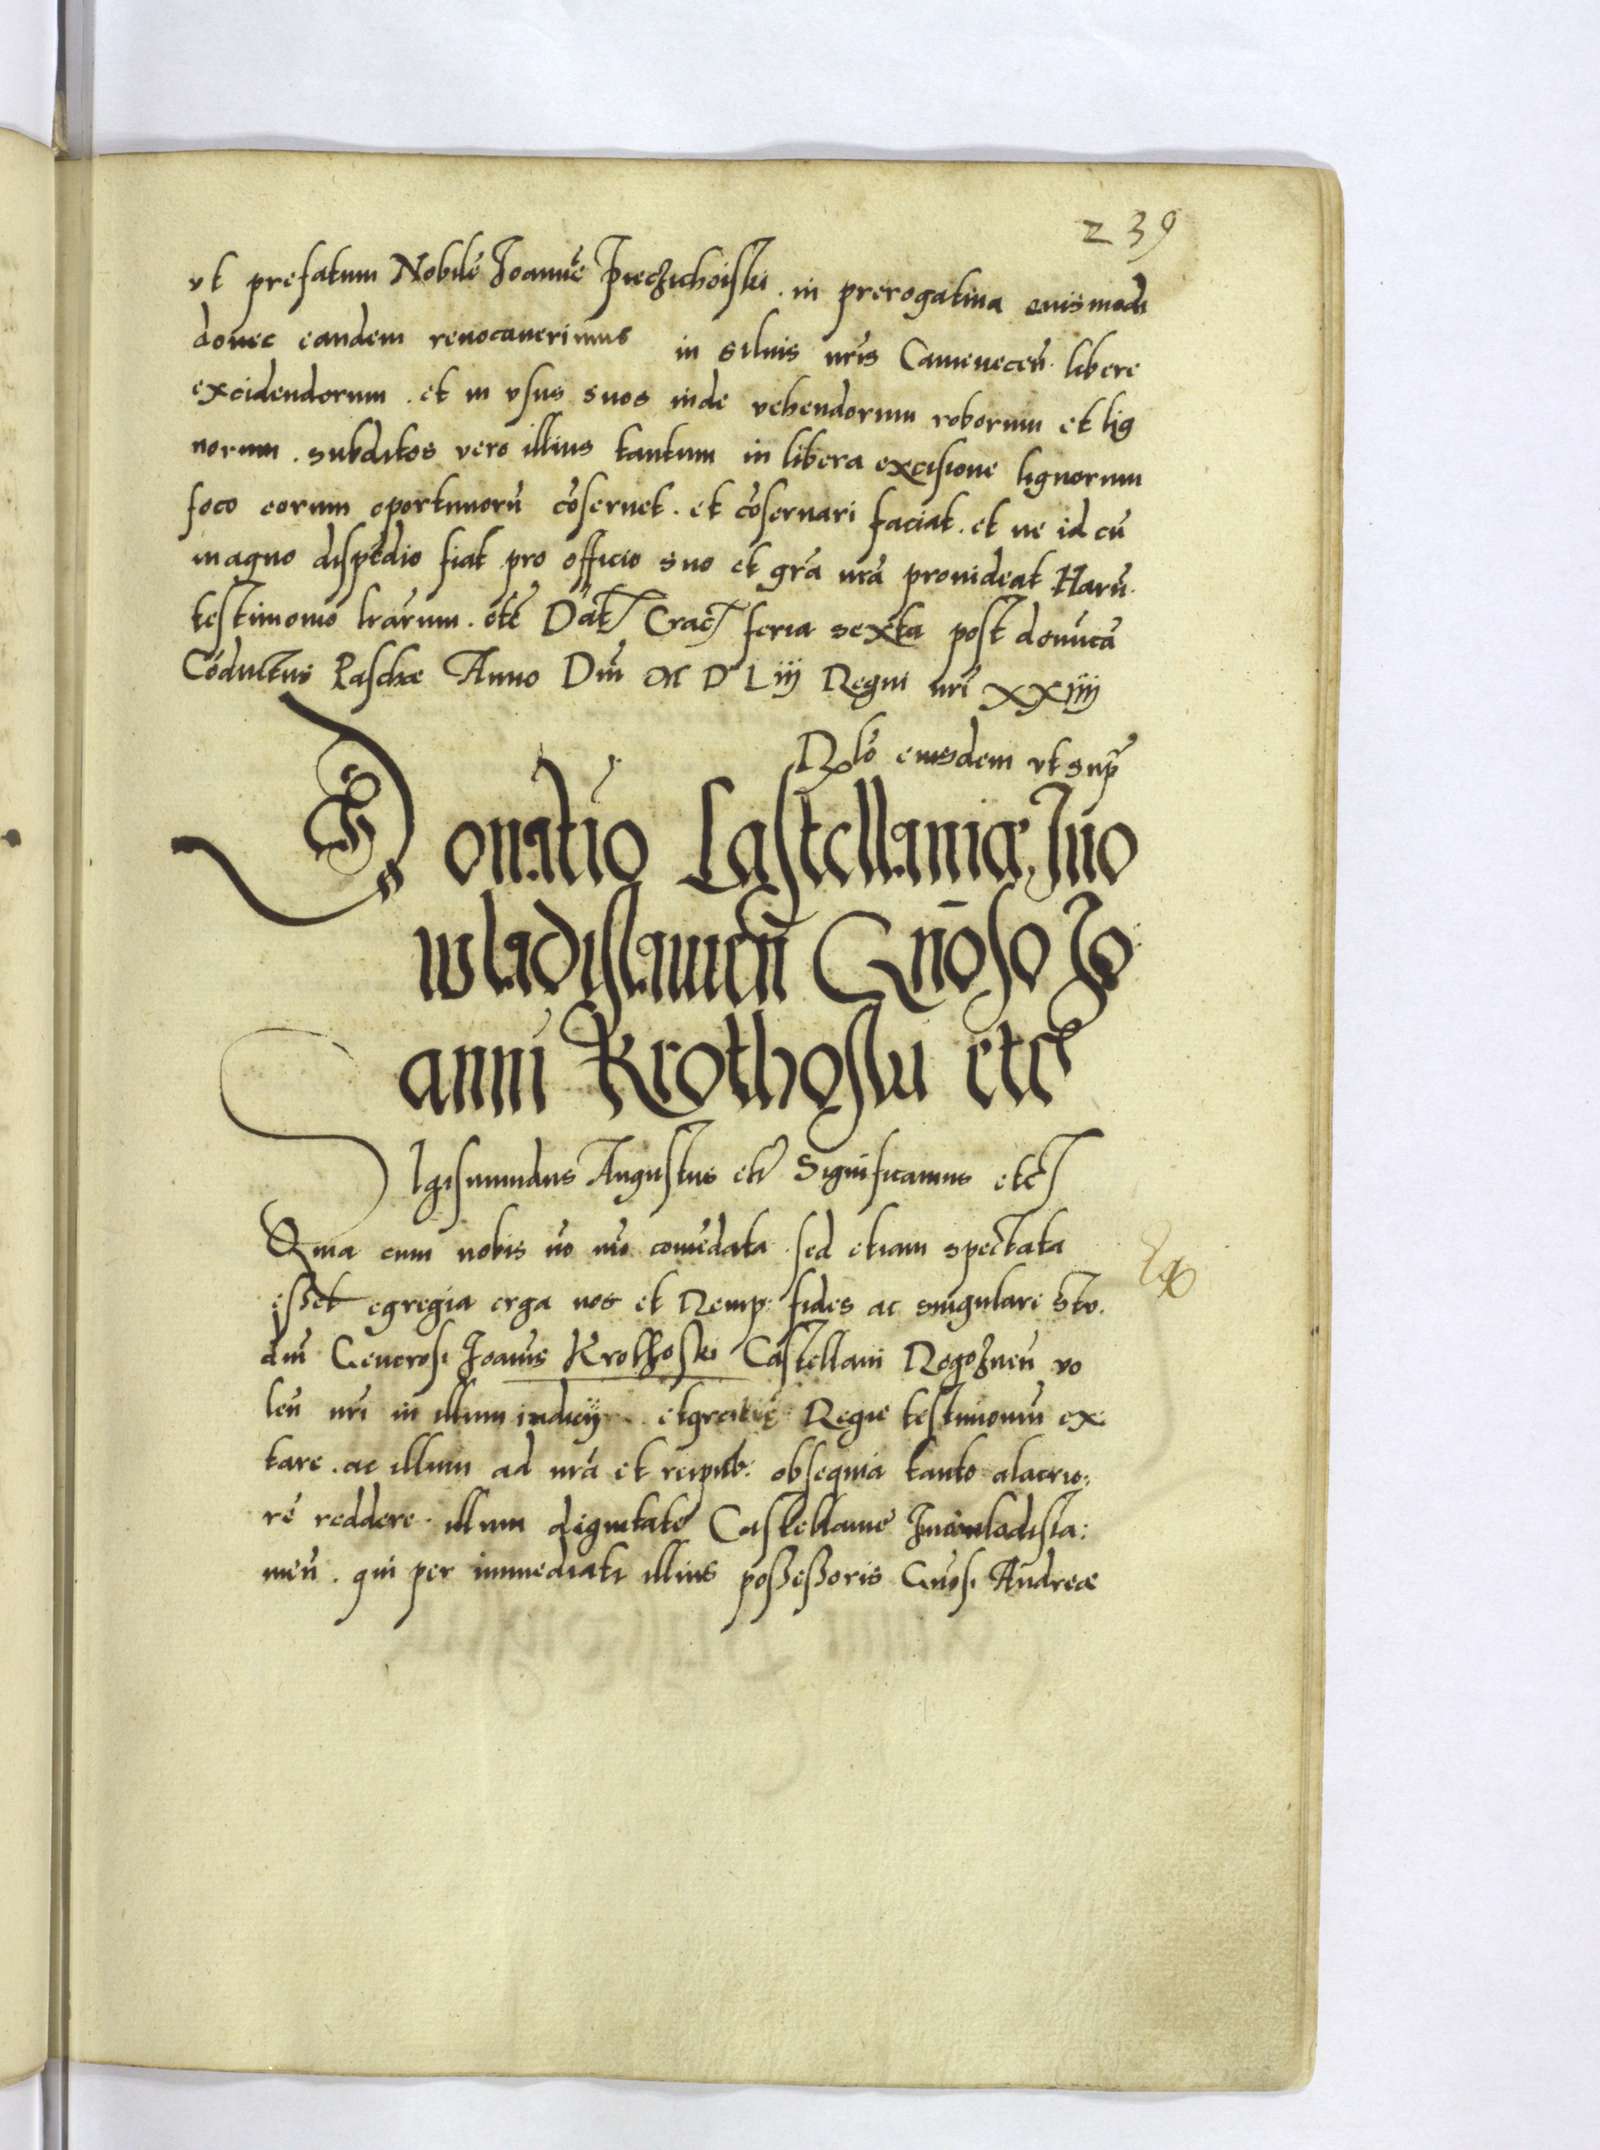 239
vt prefatum Nobilẽ Joannẽ Piechichoisski . in prerogatiua euismodi
donec eandem reuocauerimus in siluis nr̃is Camenecen̄ . libere
excidendorum . et in vsus suos inde vehendorum roborum et lig
norum . subditos vero illius tantum in libera excisione lignorum
foco eorum oportunorũ cõseruet . et cõseruari faciat . et ne id cũ
magno dispẽdio fiat pro officio suo et gr̃a nr̃a prouideat Harũ
testimonio lr̃arum . etc̃ Dat̃ Crac̃ feria sexta post donucã
Cõductus Paschæ Anno Dnĩ M D L iij Regni nr̃i XXiiij
Rlõ eiusdem vt sup̃
Donatio Castellaniæ Juno
wladislauien̄ Gn̄oso Jo
anni Krothoski etc̃
Sigismundus Augustus etc̃ Significamus etc̃
Quia cum nobis nõ mõ comẽdata . sed etiam spectata
esset egregia erga nos et Remp: fides ac singulare stu
diũ Generosi Joanĩs Krothoski Castellani Rogoznen̄ vo
len̄ nr̃i in illum iudicij et gratiẽ Regie testimoniũ ex
tare . ac illum ad nr̃a et reipub: obsequia tanto alacrio:
rẽ reddere . illum dignitatẽ Castellaniẽ Juniwladisla:
uien̄ . qui per immediati illius possessoris Gn̄osi Andreæ